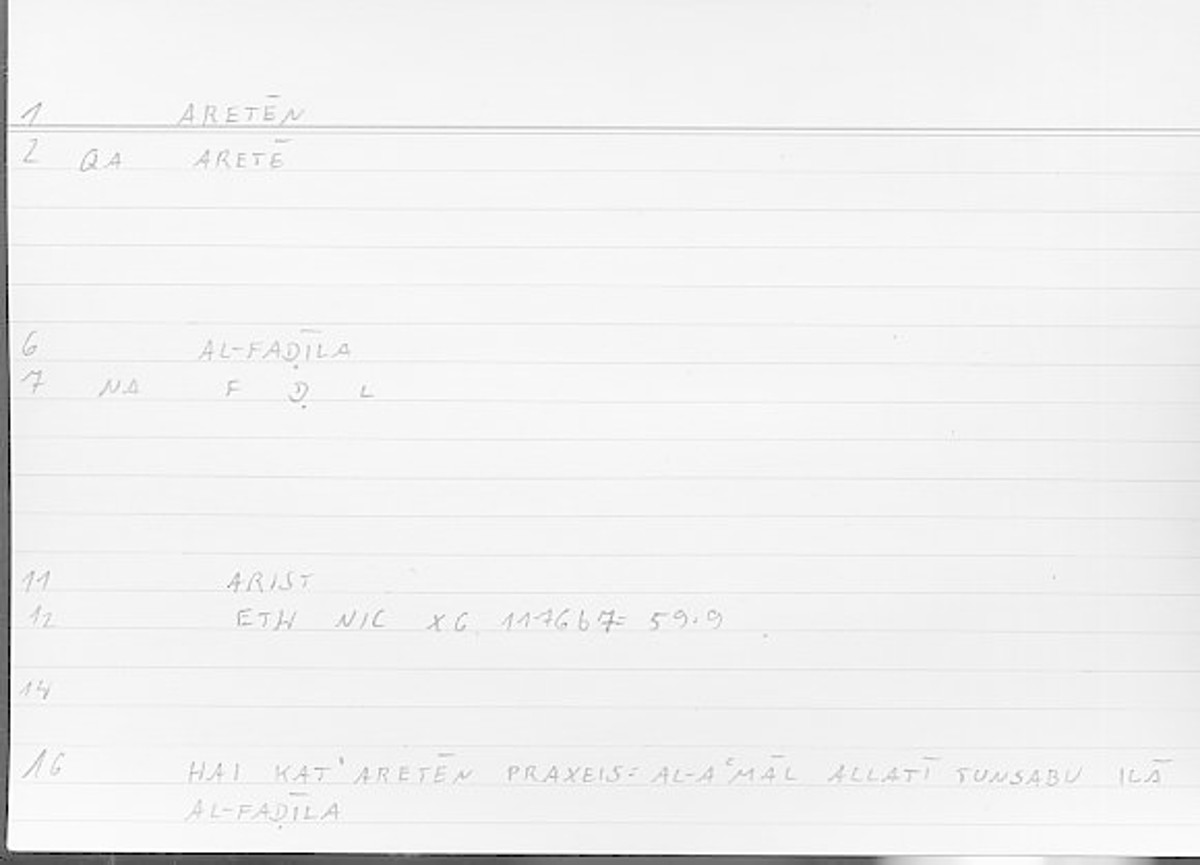 1 ARETĒN
2 QA ARETĒ
6 AL-FAḌĪLA
7 NA F Ḍ L
11 ARIST
12 ETH NIC X6 1176b7= 59.9
14
16 HAI KAT' ARETĒN PRAXEIS: AL-AʿMĀL ALLATĪ TUNSABU ILĀ
AL-FAḌĪLA